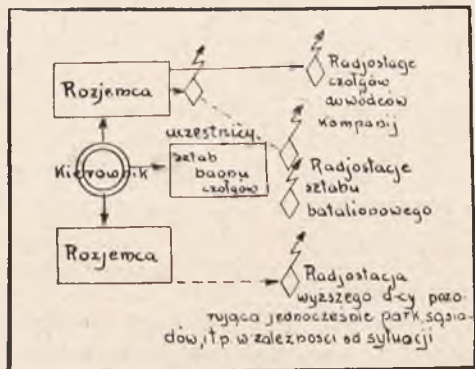 Rozjemca
Radjostacje
czołgów
dowódców
kompanij
uczestnicy.
sztab
baonu
czołgów
Kierownik
Radjostacje
sztabu
batalionowego
Rozjemca
Radjostacja
wyższego d-cy pozo-
rująca jednocześnie park, sąsia-
dów, i t.p. w zależności od sytuacji